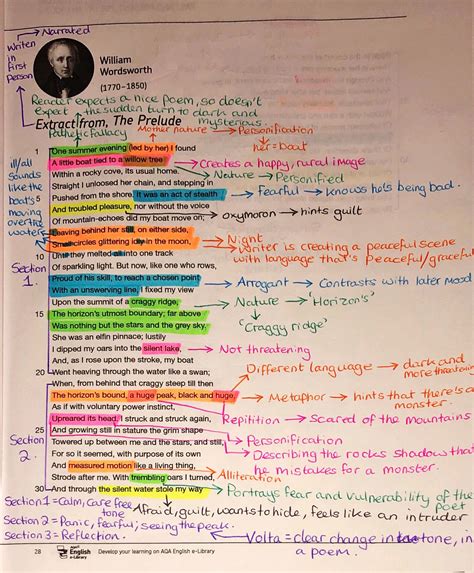 Narrated
Writen
in
first
person
William
Wordsworth
(1770–1850)
Reader expects a nice poem, so doesn't
expect the sudden turn to dark and
mysterious.
Extract from, The Prelude
Pathetic fallacy
Mother nature → Personification
her = boat
1 One summer evening (led by her) I found
A little boat tied to a willow tree
Creates a happy, rural image
Within a rocky cove, its usual home.
Nature → Personified
Straight I unloosed her chain, and stepping in
5 Pushed from the shore. It was an act of stealth
Fearful → Knows he's being bad.
And troubled pleasure, nor without the voice
oxymoron → hints guilt
Of mountain-echoes did my boat move on;
ill/all
sounds
like the
boat's
moving
over the
water
Leaving behind her still, on either side,
Small circles glittering idly in the moon,
Night
Writer is creating a peaceful scene
with language that's peaceful/graceful
10 Until they melted all into one track
Of sparkling light. But now, like one who rows,
Section
1.
Proud of his skill, to reach a chosen point
Arrogant → Contrasts with later mood
With an unswerving line, I fixed my view
Upon the summit of a craggy ridge,
Nature → 'Horizon's'
'Craggy ridge'
15 The horizon's utmost boundary; far above
Was nothing but the stars and the grey sky.
She was an elfin pinnace; lustily
I dipped my oars into the silent lake,
Not threatening
And, as I rose upon the stroke, my boat
20 Went heaving through the water like a swan;
Different language → dark and
more threatening
When, from behind that craggy steep till then
The horizon's bound, a huge peak, black and huge,
Metaphor → hints that there's a
monster.
As if with voluntary power instinct,
Upreared its head. I struck and struck again,
Repitition → Scared of the mountains
25 And growing still in stature the grim shape
Personification
Section
2.
Towered up between me and the stars, and still,
Describing the rocks shadow that
he mistakes for a monster.
For so it seemed, with purpose of its own
And measured motion like a living thing,
Strode after me. With trembling oars I turned,
Alliteration
30 And through the silent water stole my way
Portrays fear and vulnerability of the
poet
Section 1 = Calm, care free
tone
Afraid, guilt, wants to hide, feels like an intruder
Section 2 = Panic, fearful; seeing the peak.
Section 3 = Reflection.
Volta = clear change in tone, in
a poem.
28
AQA
English
e-Library
Develop your learning on AQA English e-Library